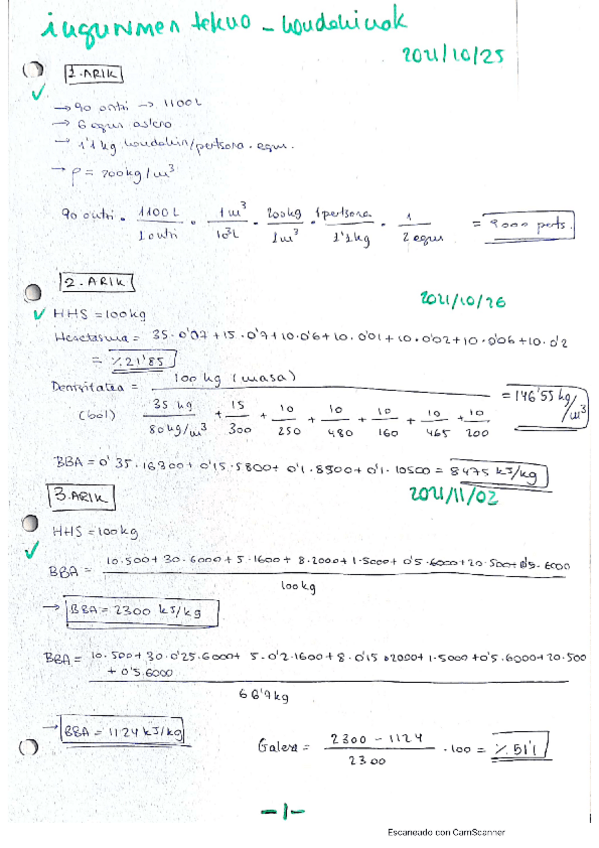 ingurumen tekno - hondakinak
2021/10/25
1. ARIK
→ 90 ontri → 1100L
→ 6 egun astero
→ 1'1 kg hondakin/pertsona · egun.
→ ρ = 200kg/m³
90 ontri · 1100L / 1 ontri · 1m³ / 10³L · 200kg / 1m³ · 1 pertsona / 1'1kg · 1 / 2 egun = 9000 perts.
2. ARIK
2021/10/26
HHS = 100kg
Hezetasuna = 35 · 0'07 + 15 · 0'7 + 10 · 0'6 + 10 · 0'01 + 10 · 0'02 + 10 · 0'06 + 10 · 0'2
= %21'85
Dentsitatea = 100 kg (masa)
(bol) 35 kg / 80 kg/m³ + 15 / 300 + 10 / 250 + 10 / 480 + 10 / 160 + 10 / 465 + 10 / 200 = 146'55 kg/m³
BBA = 0'35 · 16300 + 0'15 · 5800 + 0'1 · 8500 + 0'1 · 10500 = 8475 kJ/kg
3. ARIK
2021/11/02
HHS = 100kg
BBA = 10 · 500 + 30 · 6000 + 5 · 1600 + 8 · 2000 + 1 · 5000 + 0'5 · 6000 + 20 · 500 + 0'5 · 6000
100 kg
→ BBA = 2300 kJ/kg
BBA = 10 · 500 + 30 · 0'25 · 6000 + 5 · 0'2 · 1600 + 8 · 0'15 · 2000 + 1 · 5000 + 0'5 · 6000 + 20 · 500
+ 0'5 · 6000
66'9 kg
→ BBA = 1124 kJ/kg
Galera = 2300 - 1124 / 2300 · 100 = %51'1
-1-
Escaneado con CamScanner